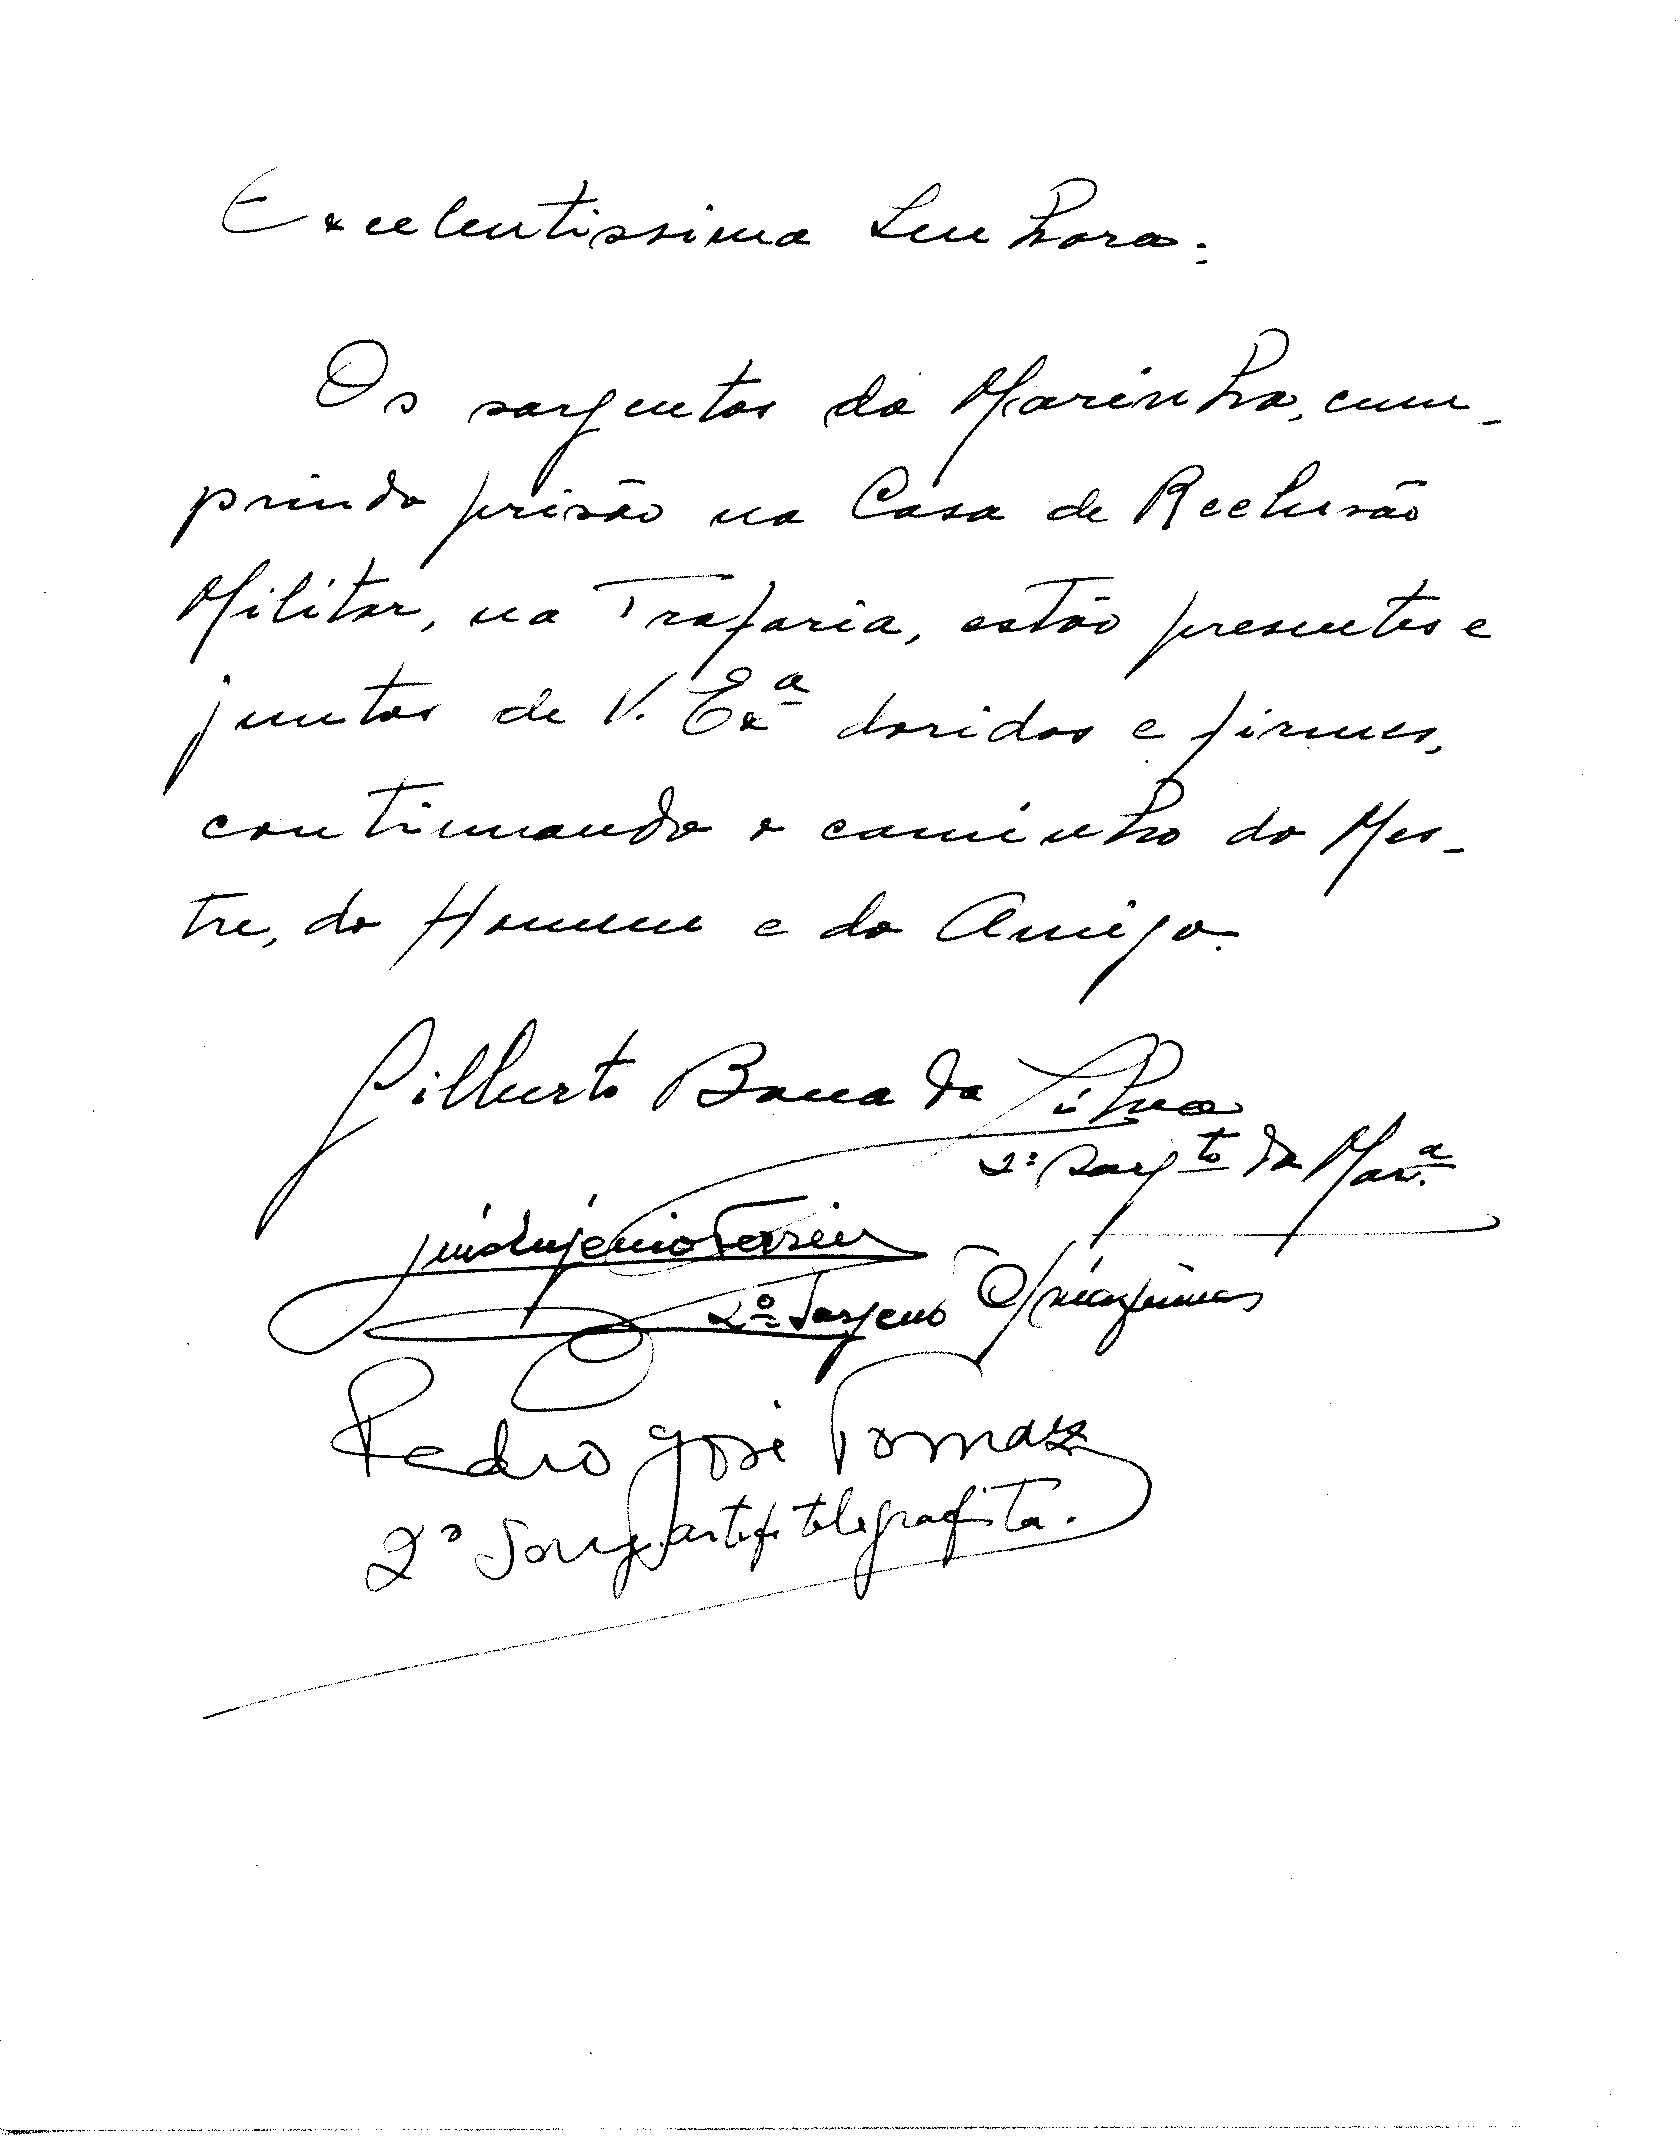 Excelentissima Senhora:
Os sargentos da Marinha, cum-
prindo prisão na Casa de Reclusão
Militar, na Trafaria, estão presentes e
juntos de V. Exª doridos e firmes,
continuando o caminho do Mes-
tre, do Homem e do Amigo.
Gilberto da Silva
2º Sargtº da Marª
Ferreira
2º Sargento
Pedro José Tomaz
2º Sarg. artf. telegrafista.